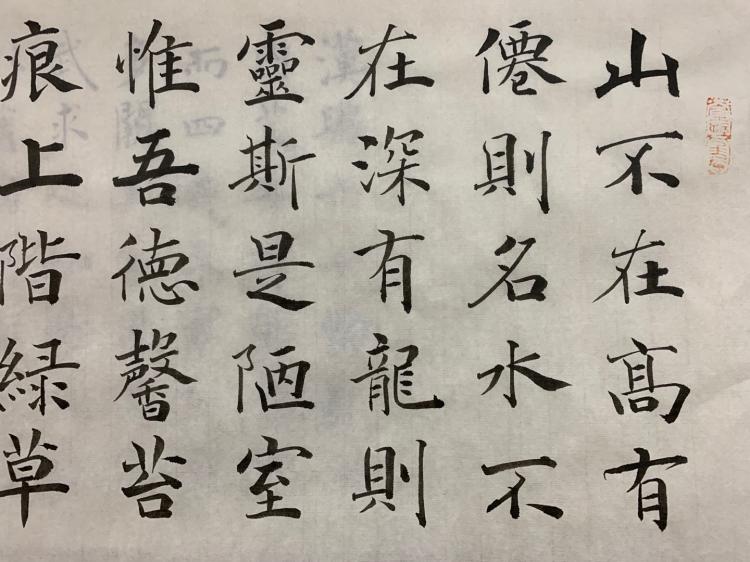 山不在髙有
僊則名水不
在深有龍則
靈斯是陋室
惟吾德馨苔
痕上階緑草